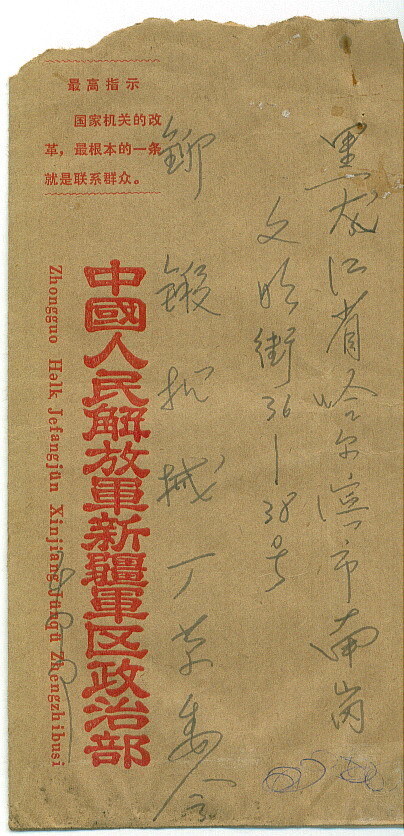 黑龙江省哈尔滨市南岗
文明街36—38号
铆锻机械厂革委会
最高指示
国家机关的改
革，最根本的一条
就是联系群众。
中國人民解放軍新疆軍区政治部
Zhongguo Həlk Jefangjün Xinjiang Jünqu Zhengzhibusi